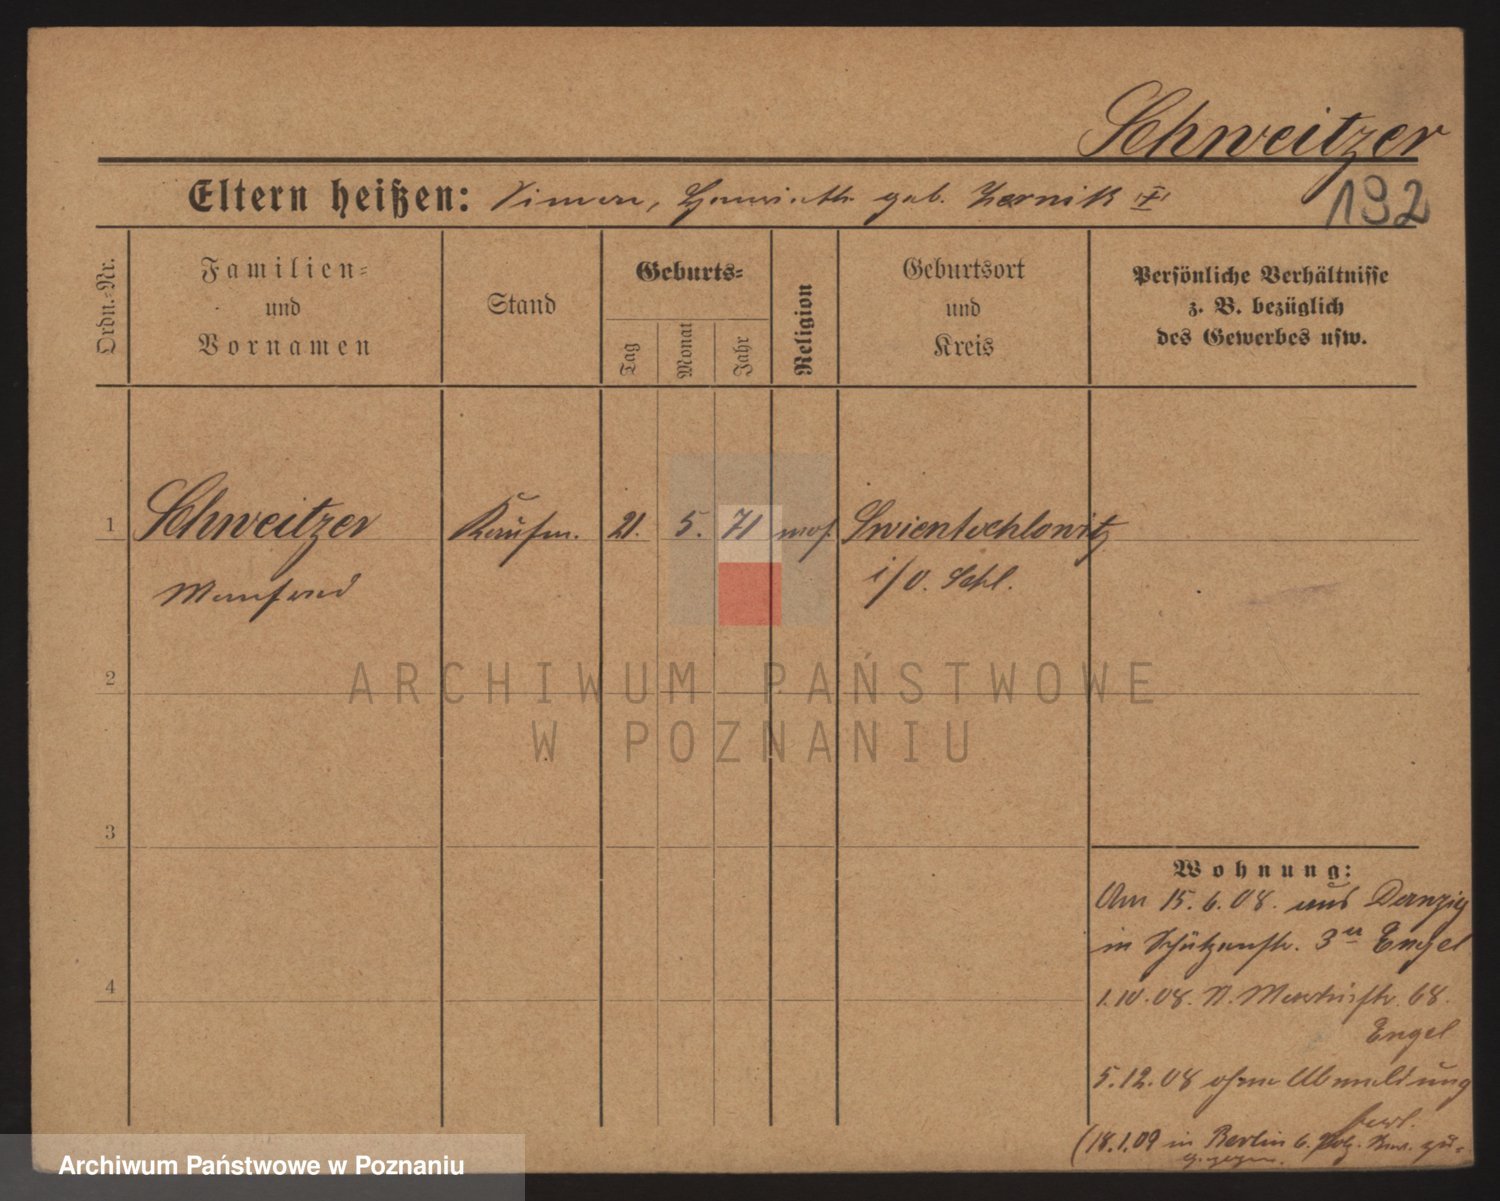 Schweitzer
Eltern heißen: Simon, Henrieth geb. Zernik
192
Ordn.-Nr.
Familien-
und
Vornamen
Stand
Geburts-
Tag
Monat
Jahr
Religion
Geburtsort
und
Kreis
Persönliche Verhältnisse
z. B. bezüglich
des Gewerbes usw.
1 Schweitzer Kaufm. 21. 5. 71 mos. Swientochlowitz
Manfred i/O. Schl.
2
ARCHIWUM PAŃSTWOWE
W POZNANIU
3
Wohnung:
Am 15.6.08. aus Danzig
in Schützenstr. 3 Engel
4
1.10.08. N. Martinstr. 68.
Engel
5.12.08 ohne Abmeldung
(18.1.09 in Berlin 6. zu-
Archiwum Państwowe w Poznaniu